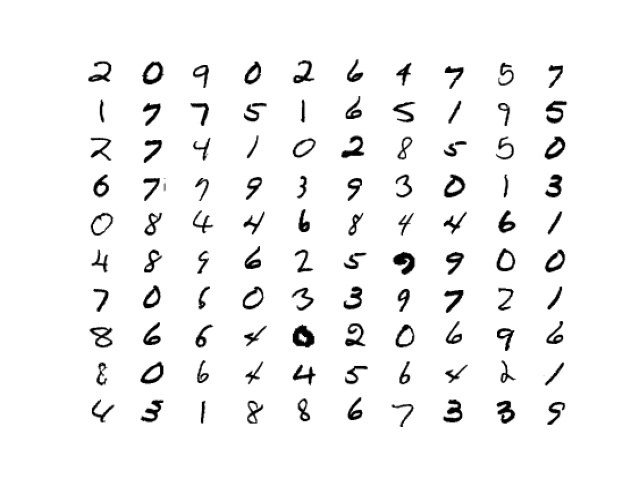 2 0 9 0 2 6 4 7 5 7
1 7 7 5 1 6 5 1 9 5
2 7 4 1 0 2 8 5 5 0
6 7 7 9 3 9 3 0 1 3
0 8 4 4 6 8 4 4 6 1
4 8 9 6 2 5 9 9 0 0
7 0 6 0 3 3 9 7 2 1
8 6 6 4 0 2 0 6 9 6
8 0 6 4 4 5 6 4 2 1
4 3 1 8 8 6 7 3 3 9